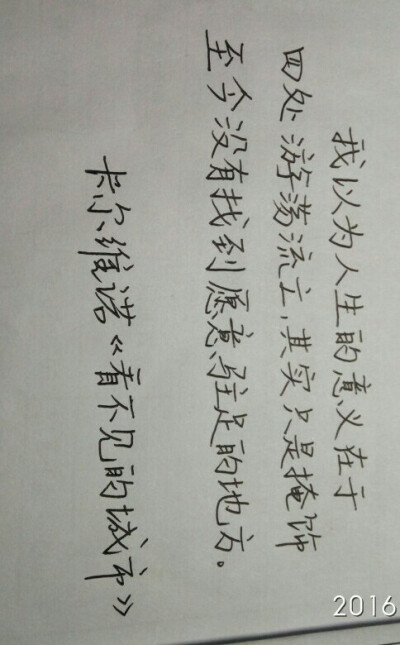 我以为人生的意义在于
四处游荡流亡,其实只是掩饰
至今没有找到愿意驻足的地方。
卡尔维诺《看不见的城市》
2016